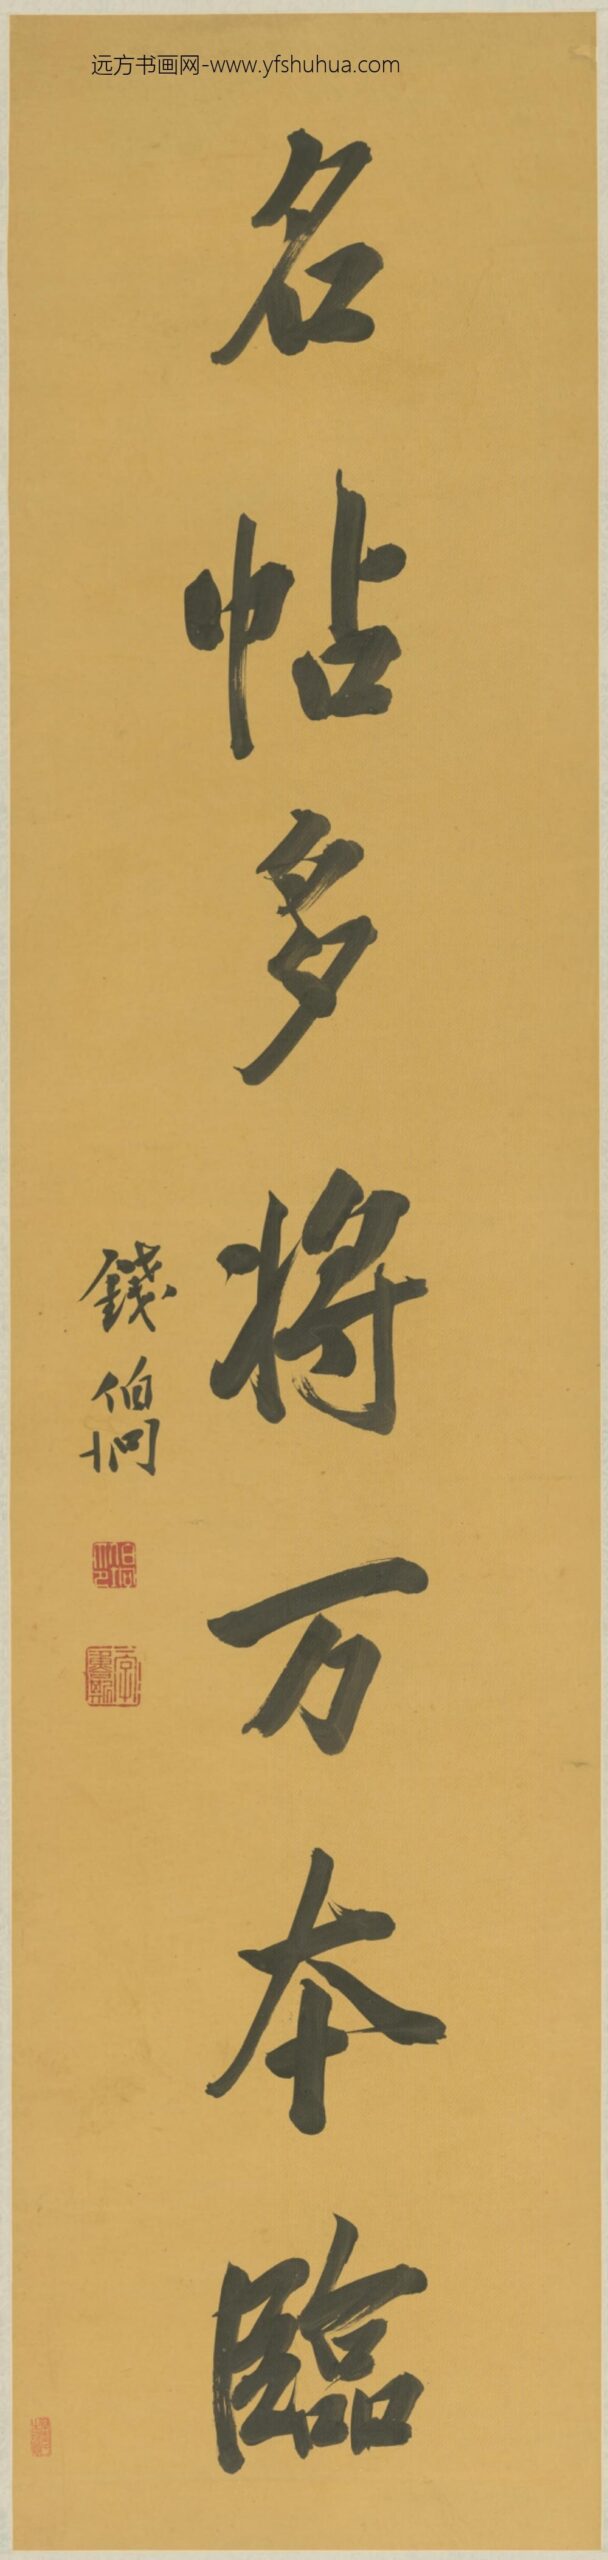 远方书画网-www.yfshuhua.com
名帖多将万本臨
錢伯坰